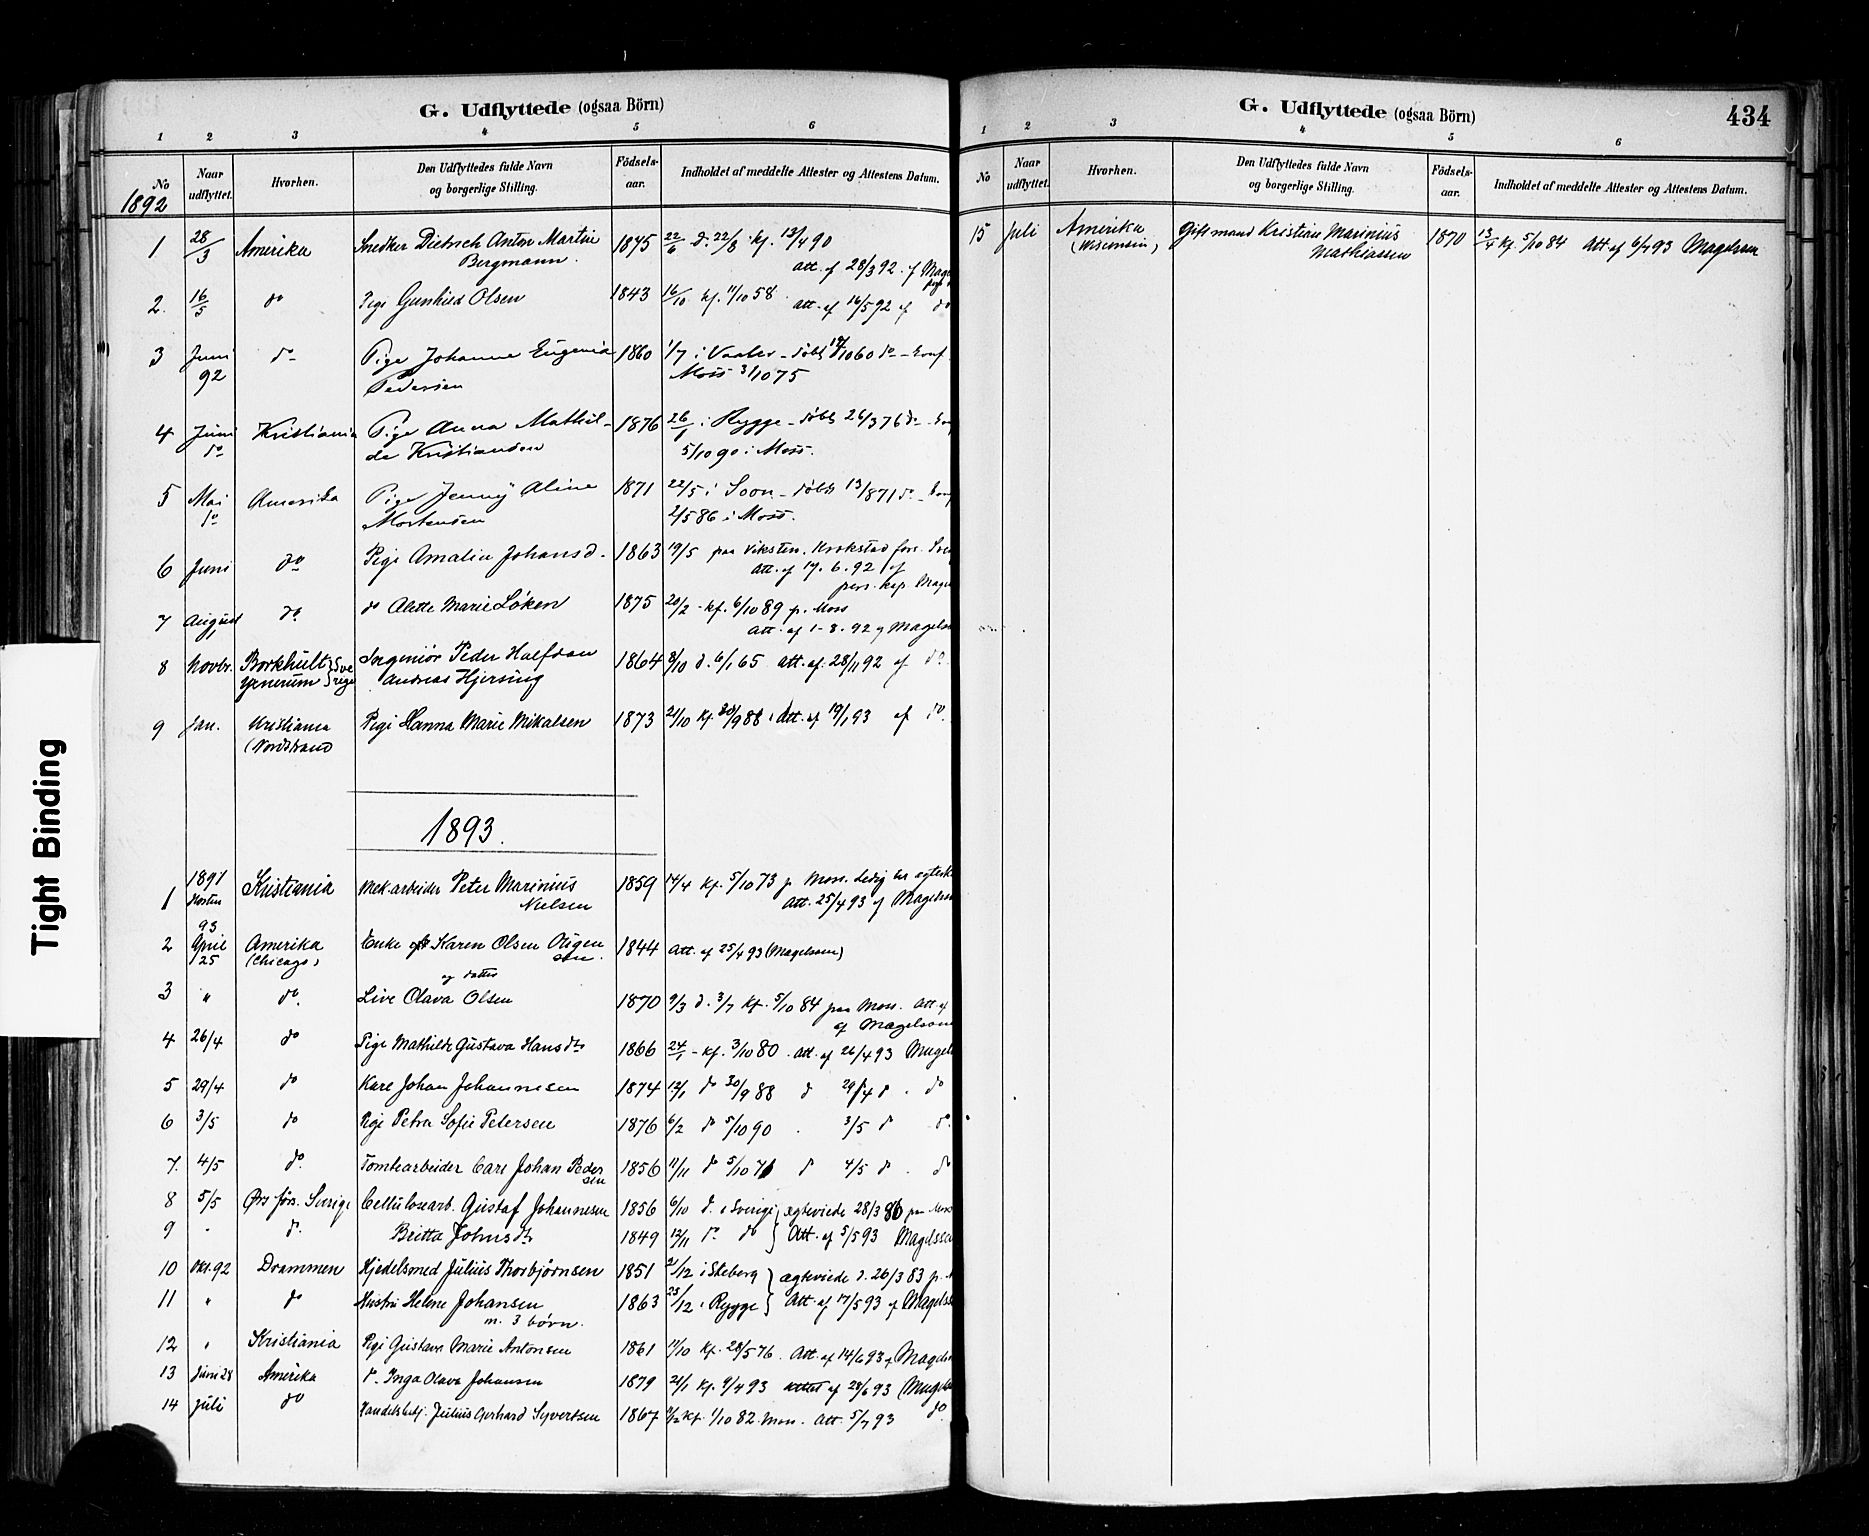 G. Udflyttede (ogsaa Börn)
1 2 3 4 5 6
No Naar udflyttet. Hvorhen. Den Udflyttedes fulde Navn og borgerlige Stilling. Födsels-aar. Indholdet af meddelte Attester og Attestens Datum.
1892
1 28/3 Amerika Snedker Dietrich Anton Martin 1845 22/6 d. 22/8 kf. 13/4 90
Bergmann. att. af 28/3 92 af
2. 16/5 do Pige Gunhild Olsen 1843 16/10 kf. 11/10 58 att. af 16/5 92 af do
3 Juni do Pige Johanne Eugenia 1860 1/7 i Vaaler – döbt 60 do – konf
92 Pedersen Moss 3/10 75
4 Juni Kristiania Pige Anna Mathil- 1876 26/1 i Rygge – döbt 26/3 76 do
do de Kristiansen 5/10 90 i Moss.
5 Mai Amerika Pige Jenny Aline 1871 22/5 i Soon – döbt 13/8 71 do
do Mortensen 2/5 86 i Moss.
6 Juni do Pige Amalie Johansd. 1863 19/5 paa Viksten, Krokstad
Att. af 17. 6. 92 af
pers. kap.
7 August do do Alette Marie Löken 1875 20/2 – kf. 6/10 89 p. Moss
Att. af 1-8. 92 af Magels
8 Novbr. Borkhult Sve Ingeniör Peder Halfdan 1864 8/10 d. 6/1 65 att. af 28/11 92 af do
Yxnerum rige Andreas Hjersing
9 Jan. Kristiania Pige Hanna Marie Mikalsen 1873 21/10 kf. 30/9 88 Att. af 19/1 93 af do.
(Nordstrand
1893.
1 1891 Kristiania Mek. arbeider Peter Marinius 1859 14/4 kf. 5/10 73 p. Moss. Ledig
Hösten Nielsen Att. 25/4 93 af Magelss
2 93 April 25 Amerika Enke Karen Olsen 1844 Att. af 25/4 93 (Magelssen)
(Chicago)
og datter
3 " do. Live Olava Olsen 1870 9/3 d. 3/7 kf. 5/10 84 paa Moss. Att. af
af Magelssen
4 26/4 do Pige Mathilde Gustava Hansdtr 1866 24/1 – kf. 3/10 80. att. af 26/4 93
5 29/4 do Karl Johan Johannesen 1874 12/1 do 30/9 88 d 29/4 d. do
6 3/5 do Pige Petra Sofie Petersen 1876 6/2 do 5/10 90 . 3/5 d do.
7. 4/5 do. Tomtearbeider Carl Johan Peder 1856 11/11 do 5/10 71 d 4/5 d. do
sen
8 5/5 Sverige Cellulosearb. Gustaf Johannesen 1856 6/10 d. i Sverige ægteviede 28/3 86 paa Moss
9 " do. Britta Johnsdtr 1849 12/11 do do Att. af 5/5 93 Magelssen
10 Okt. 92 Drammen Kjedelsmed Julius Thorbjörnsen 1851 2/12 i Skeberg ægteviede d. 26/3 83 p.
11 " do Hustru Helene Johansen 1863 23/12 i Rygge Att. af 17/5 93 af Magelss
m. 3 börn.
12 " Kristiania Pige Gustava Marie Antonsen 1861 17/10 kf. 28/5 76. Att. af 14/6 93 af Magels
13 Juni 28 Amerika do Inga Olava Johansen 1879 21/1 kf. 9/4 93 af 28/6 93
14 Juli do Handelsbetj. Julius Gerhard Syvertsen 1867 kf. 1/10 82. Moss. Att. 5/7 93 do.
G. Udflyttede (ogsaa Börn) 434
1 2 3 4 5 6
No Naar udflyttet. Hvorhen. Den Udflyttedes fulde Navn og borgerlige Stilling. Födsels-aar. Indholdet af meddelte Attester og Attestens Datum.
15 Juli Amerika Gift mand Kristian Marinius 1870 13/4 kf. 5/10 84 Att. af 6/7 93 Magelssen
(Wisconsin) Mathiassen
Tight Binding